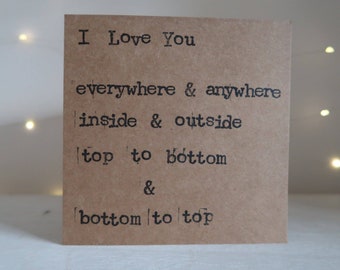 I Love You
everywhere & anywhere
inside & outside
top to bottom
&
bottom to top